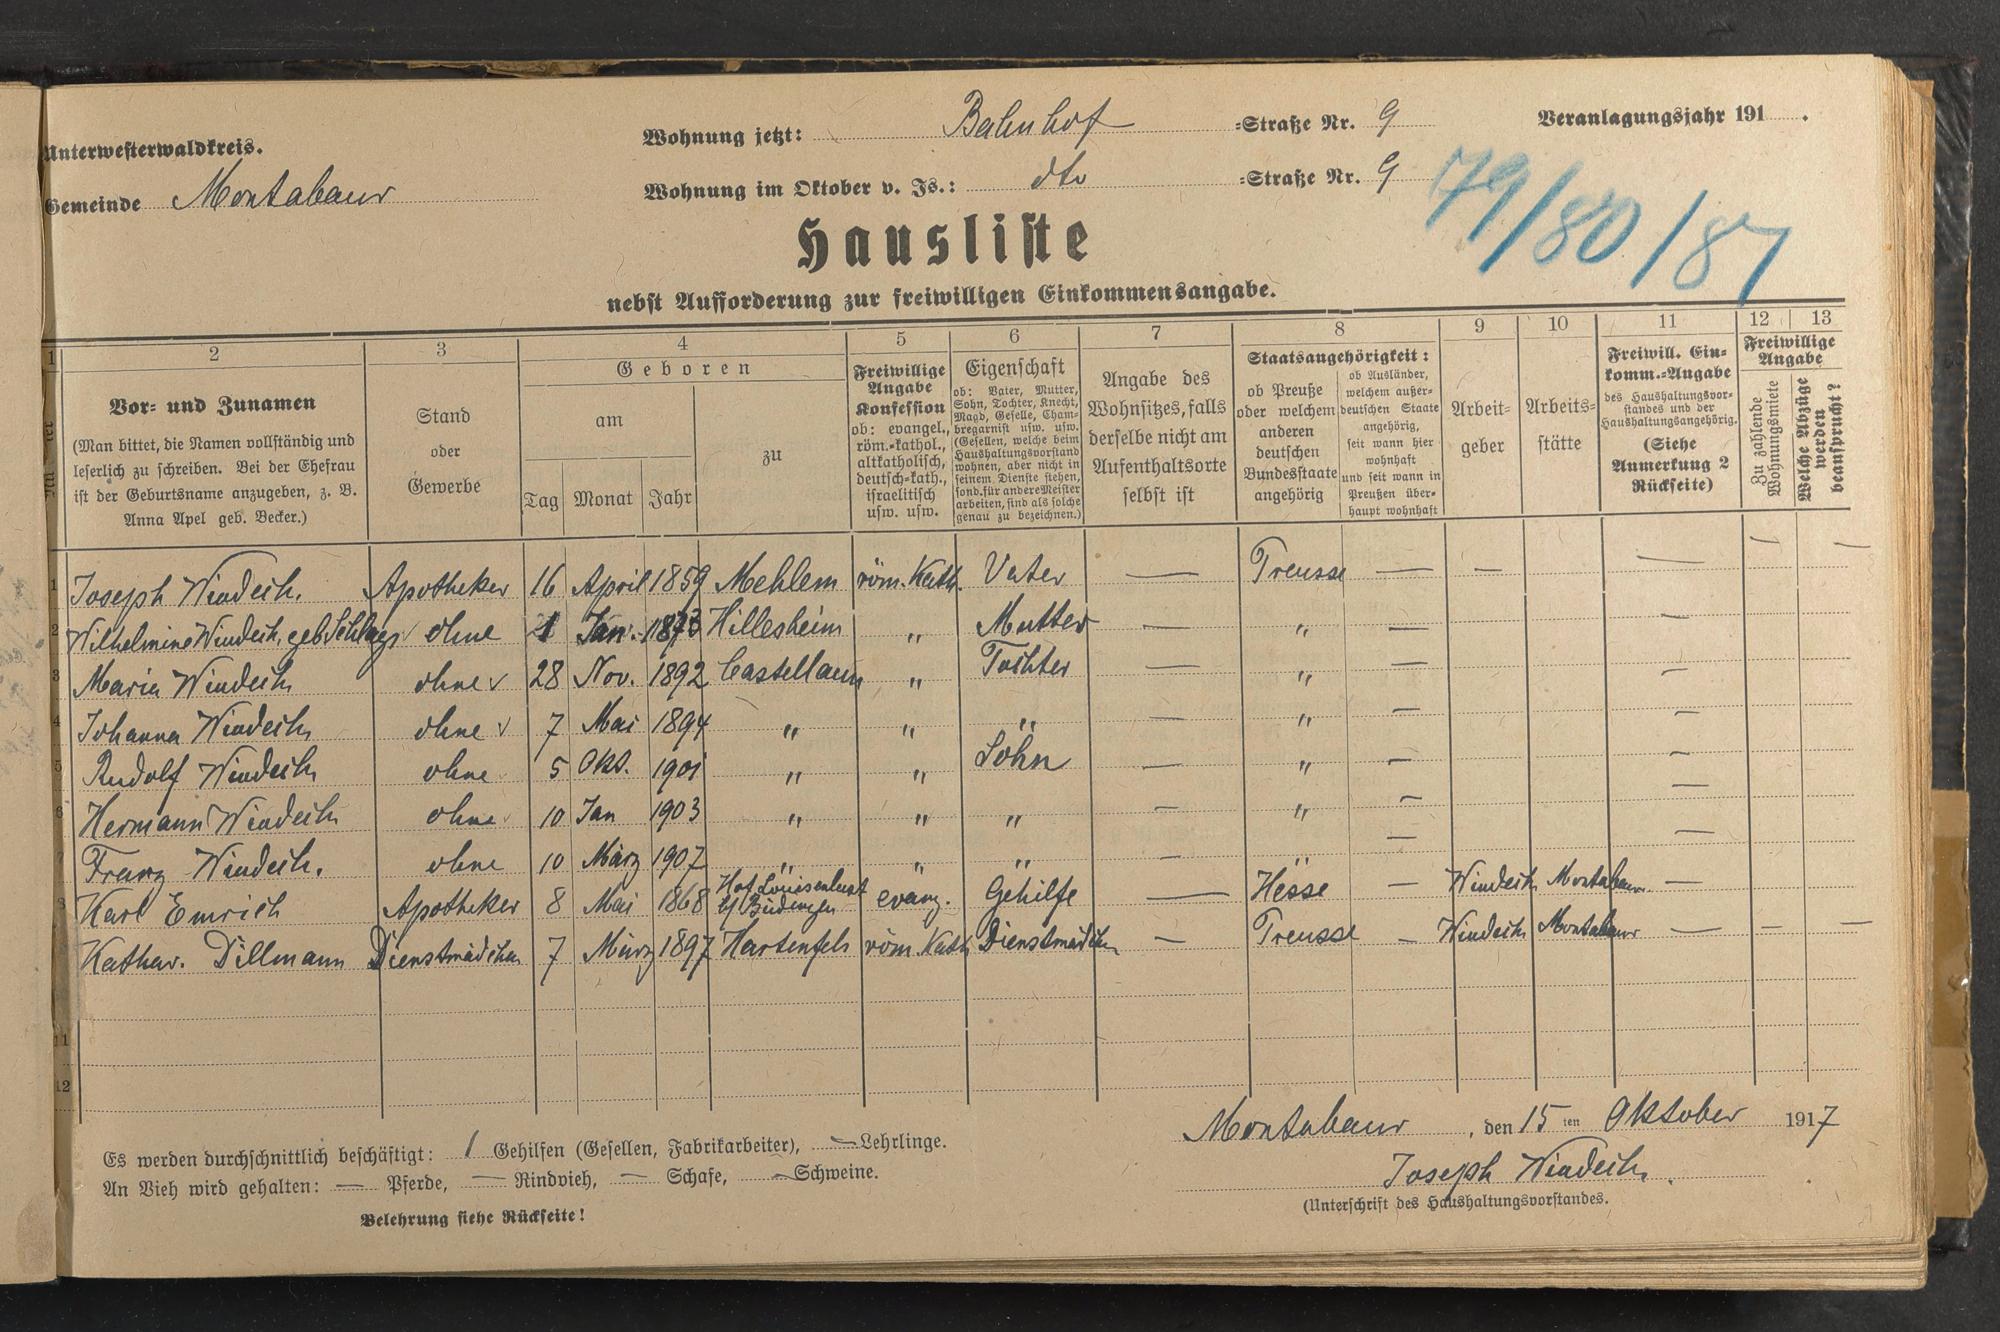 Unterwesterwaldkreis.
Gemeinde Montabaur
Wohnung jetzt: Bahnhof =Straße Nr. 9
Wohnung im Oktober v. Js.: dto =Straße Nr. 9
Veranlagungsjahr 191 .
79/80/87
Hausliste
nebst Aufforderung zur freiwilligen Einkommensangabe.
1 2 3 4 5 6 7 8 9 10 11 12 13
Vor- und Zunamen
(Man bittet, die Namen vollständig und
leserlich zu schreiben. Bei der Ehefrau
ist der Geburtsname anzugeben, z. B.
Anna Apel geb. Becker.)
Stand
oder
Gewerbe
Geboren
am
Tag Monat Jahr
zu
Freiwillige
Angabe
Konfession
ob: evangel.,
röm.-kathol.,
altkatholisch,
deutsch-kath.,
israelitisch
usw. usw.
Eigenschaft
ob: Vater, Mutter,
Sohn, Tochter, Knecht,
Magd, Geselle, Cham-
bregarnist usw. usw.
(Gesellen, welche beim
Haushaltungsvorstand
wohnen, aber nicht in
seinem Dienste stehen,
sond. für andere Meister
arbeiten, sind als solche
genau zu bezeichnen.)
Angabe des
Wohnsitzes, falls
derselbe nicht am
Aufenthaltsorte
selbst ist
Staatsangehörigkeit:
ob Preuße
oder welchem
anderen
deutschen
Bundesstaate
angehörig
ob Ausländer,
welchem außer-
deutschen Staate
angehörig,
seit wann hier
wohnhaft
und seit wann in
Preußen über-
haupt wohnhaft
Arbeit-
geber
Arbeits-
stätte
Freiwill. Ein-
komm.-Angabe
des Haushaltungsvor-
standes und der
Haushaltungsangehörig.
(Siehe
Anmerkung 2
Rückseite)
Freiwillige
Angabe
Zu zahlende
Wohnungsmiete
Welche Abzüge
werden
beansprucht?
1 Joseph Windech. Apotheker 16 April 1859 Mehlem röm. Kath. Vater — Preusse — — — — —
2 Wilhelmine Windech, geb. ohne 1 Jan. 1873 Hillesheim " Mutter — " — —
3 Maria Windech ohne 28 Nov. 1892 Castellaun " Tochter — " — —
4 Johanna Windech ohne 7 Mai 1894 " " " — " — —
5 Rudolf Windech ohne 5 Okt. 1901 " " Sohn — " — —
6 Hermann Windech ohne 10 Jan 1903 " " " — " — —
7 Franz Windech. ohne 10 März 1907 " " " — " — —
8 Karl Emrich Apotheker 8 Mai 1868 Hof Louisenlust
b/ Büdingen evang. Gehilfe — Hesse — Windech Montabaur —
Kathar. Dillmann Dienstmädchen 7 März 1897 Hartenfels röm. Kath Dienstmädchen — Preusse — Windech Montabaur — — —
11
12
Es werden durchschnittlich beschäftigt: 1 Gehilfen (Gesellen, Fabrikarbeiter), — Lehrlinge.
An Vieh wird gehalten: — Pferde, — Rindvieh, — Schafe, — Schweine.
Belehrung siehe Rückseite!
Montabaur, den 15 ten Oktober 1917
Joseph Windech.
(Unterschrift des Haushaltungsvorstandes.